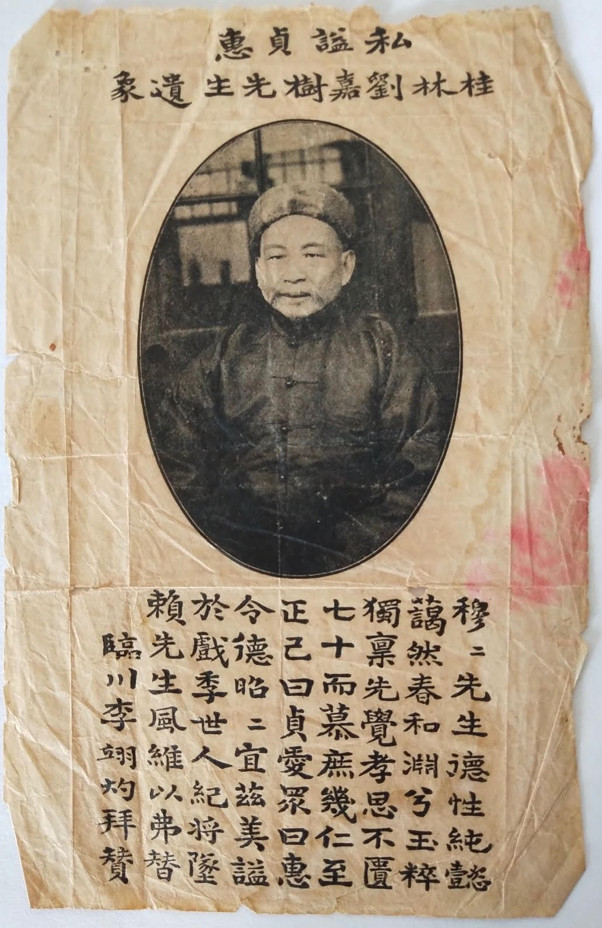 私謚貞惠
桂林劉嘉樹先生遺象
穆〻先生德性純懿
藹然春和淵兮玉粹
獨稟先覺孝思不匱
七十而慕庶幾仁至
正己曰貞愛眾曰惠
令德昭〻宜茲美謚
於戲季世人紀將墜
賴先生風維以弗替
臨川李翊灼拜贊